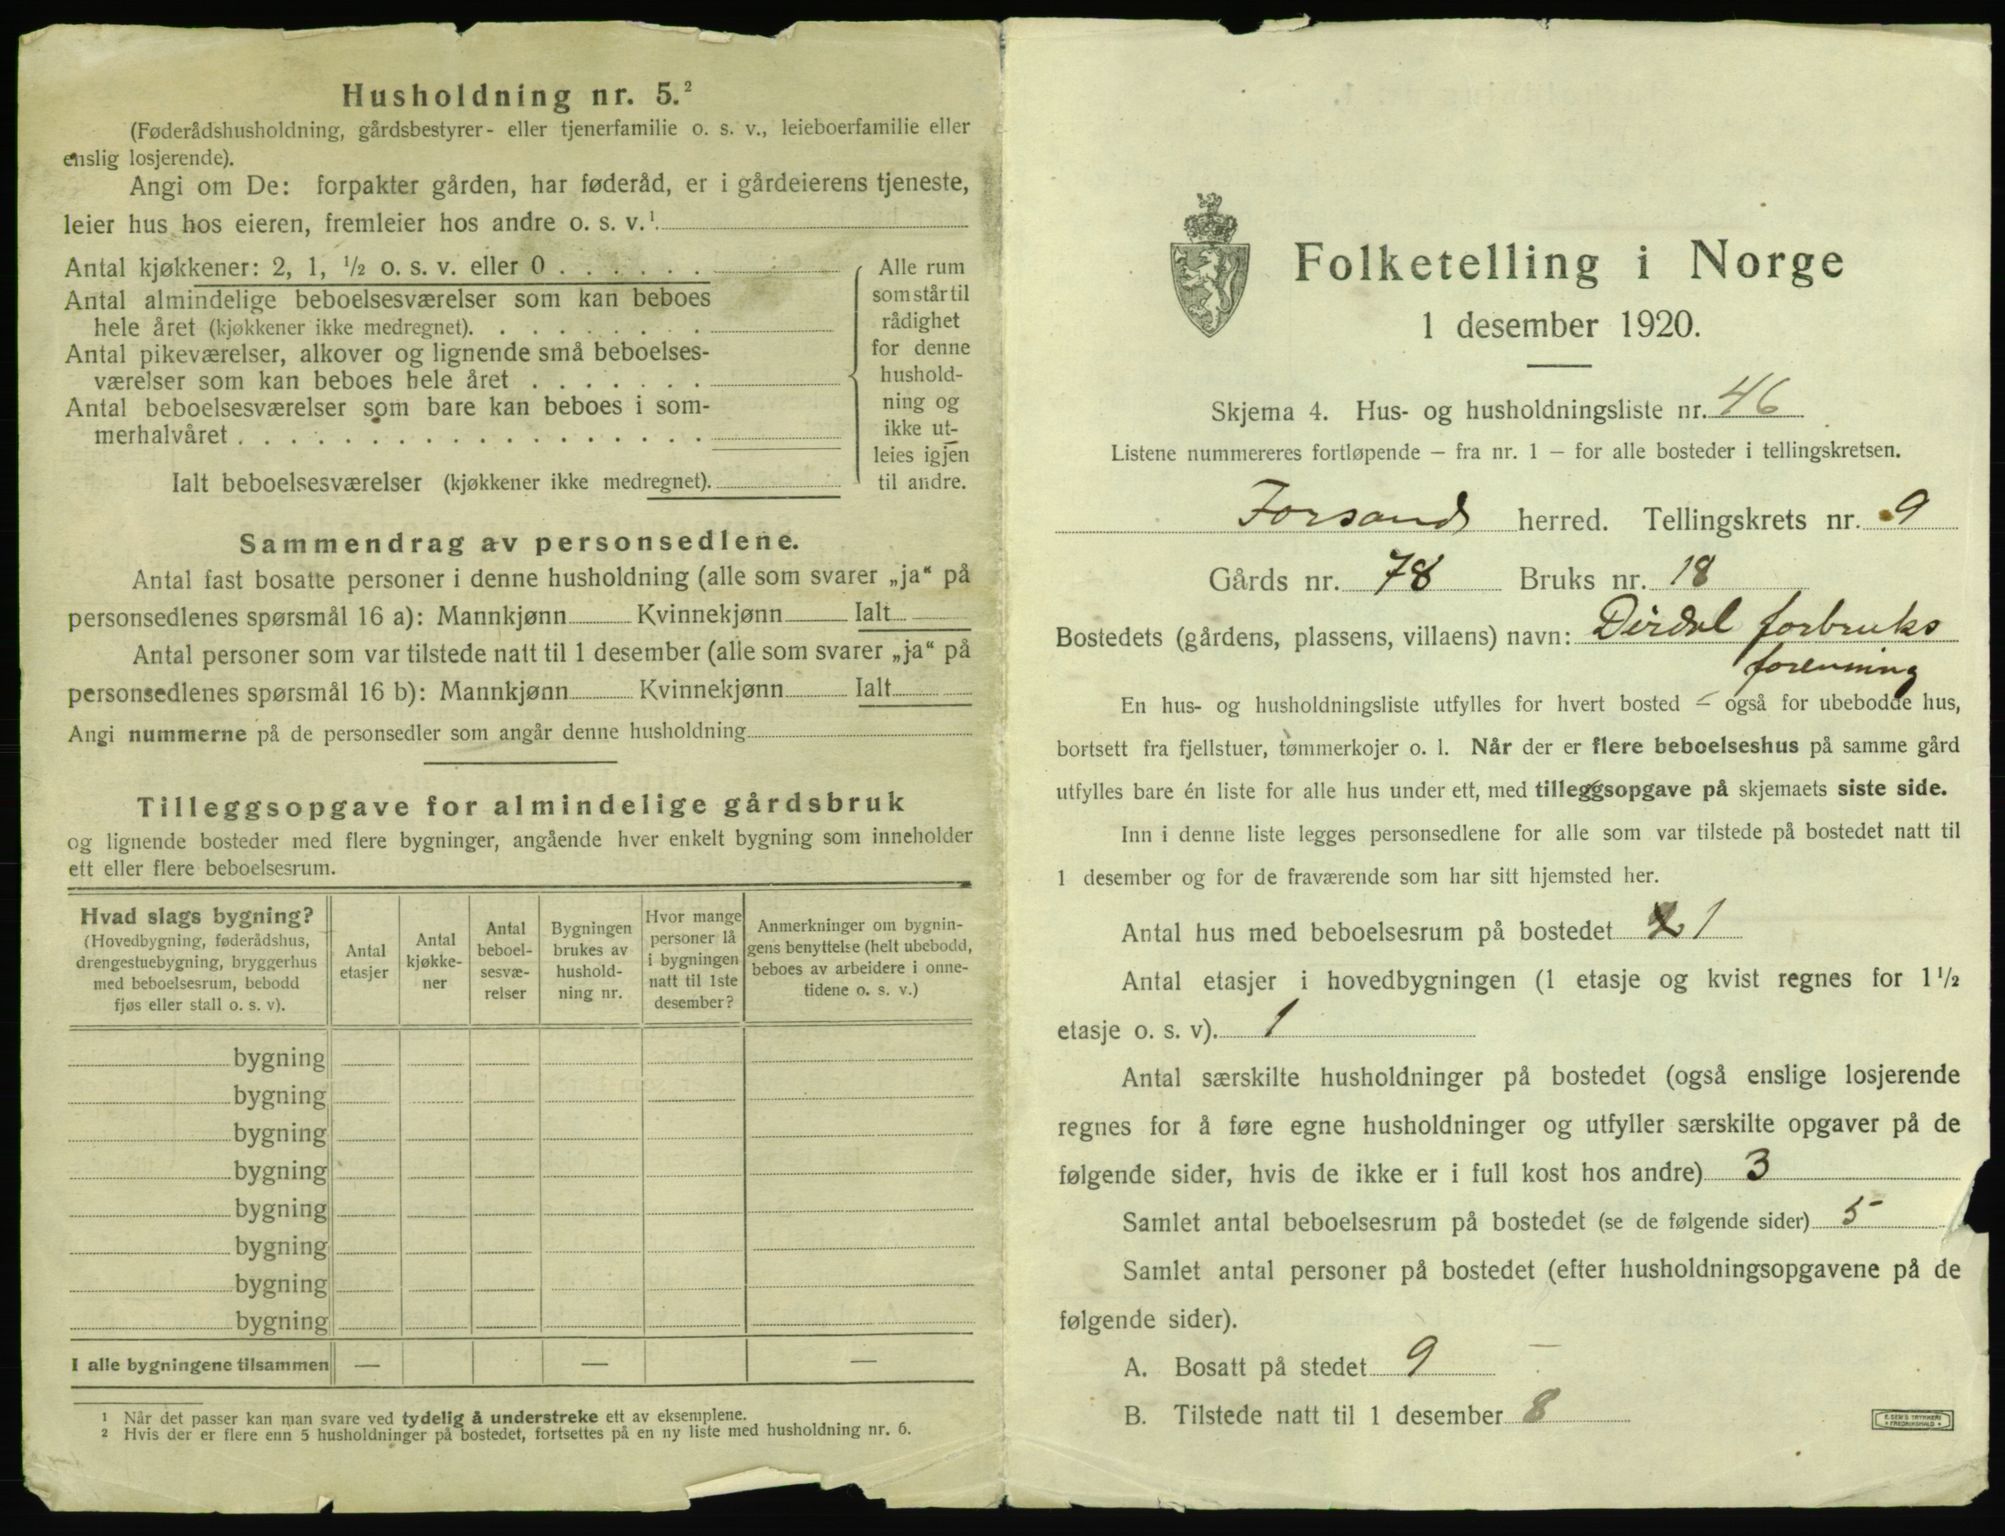 Husholdning nr. 5.²
(Føderådshusholdning, gårdsbestyrer- eller tjenerfamilie o. s. v., leieboerfamilie eller
enslig losjerende).
Angi om De: forpakter gården, har føderåd, er i gårdeierens tjeneste,
leier hus hos eieren, fremleier hos andre o. s. v.¹
Antal kjøkkener: 2, 1, ½ o. s. v. eller 0 . . . . . .
Antal almindelige beboelsesværelser som kan beboes
hele året (kjøkkener ikke medregnet). . . . . . . . .
Antal pikeværelser, alkover og lignende små beboelses-
værelser som kan beboes hele året . . . . . . .
Antal beboelsesværelser som bare kan beboes i som-
merhalvåret . . . . . . . . . . . . . . . . . .
Ialt beboelsesværelser (kjøkkener ikke medregnet).
Alle rum
som står til
rådighet
for denne
hushold-
ning og
ikke ut-
leies igjen
til andre.
Sammendrag av personsedlene.
Antal fast bosatte personer i denne husholdning (alle som svarer „ja“ på
personsedlenes spørsmål 16 a): Mannkjønn Kvinnekjønn Ialt
Antal personer som var tilstede natt til 1 desember (alle som svarer „ja“ på
personsedlenes spørsmål 16 b): Mannkjønn Kvinnekjønn Ialt
Angi nummerne på de personsedler som angår denne husholdning
Tilleggsopgave for almindelige gårdsbruk
og lignende bosteder med flere bygninger, angående hver enkelt bygning som inneholder
ett eller flere beboelsesrum.
Hvad slags bygning?
(Hovedbygning, føderådshus,
drengestuebygning, bryggerhus
med beboelsesrum, bebodd
fjøs eller stall o. s. v).
Antal
etasjer
Antal
kjøkke-
ner
Antal
beboel-
sesvæ-
relser
Bygningen
brukes av
hushold-
ning nr.
Hvor mange
personer lå
i bygningen
natt til 1ste
desember?
Anmerkninger om bygnin-
gens benyttelse (helt ubebodd,
beboes av arbeidere i onne-
tidene o. s. v.)
bygning
bygning
bygning
bygning
bygning
bygning
bygning
bygning
I alle bygningene tilsammen — — —
¹ Når det passer kan man svare ved tydelig å understreke ett av eksemplene.
² Hvis der er flere enn 5 husholdninger på bostedet, fortsettes på en ny liste med husholdning nr. 6.
Folketelling i Norge
1 desember 1920.
Skjema 4. Hus- og husholdningsliste nr. 46
Listene nummereres fortløpende – fra nr. 1 – for alle bosteder i tellingskretsen.
Forsand herred. Tellingskrets nr. 9
Gårds nr. 78 Bruks nr. 18
Bostedets (gårdens, plassens, villaens) navn: Dirdal forbruks
forenning
En hus- og husholdningsliste utfylles for hvert bosted – også for ubebodde hus,
bortsett fra fjellstuer, tømmerkojer o. l. Når der er flere beboelseshus på samme gård
utfylles bare én liste for alle hus under ett, med tilleggsopgave på skjemaets siste side.
Inn i denne liste legges personsedlene for alle som var tilstede på bostedet natt til
1 desember og for de fraværende som har sitt hjemsted her.
Antal hus med beboelsesrum på bostedet 1
Antal etasjer i hovedbygningen (1 etasje og kvist regnes for 1½
etasje o. s. v). 1
Antal særskilte husholdninger på bostedet (også enslige losjerende
regnes for å føre egne husholdninger og utfyller særskilte opgaver på de
følgende sider, hvis de ikke er i full kost hos andre) 3
Samlet antal beboelsesrum på bostedet (se de følgende sider) 5
Samlet antal personer på bostedet (efter husholdningsopgavene på de
følgende sider).
A. Bosatt på stedet 9
B. Tilstede natt til 1 desember 8
E. SEM'S TRYKKERI
FREDRIKSHALD